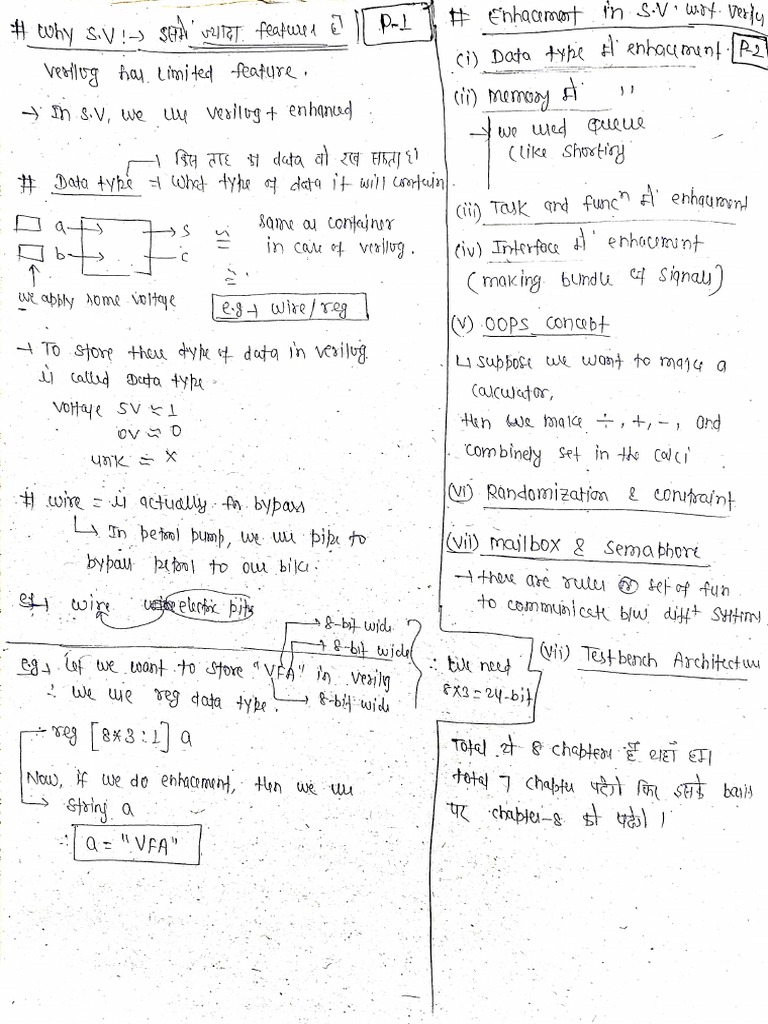 # Why S.V :→ इसमें ज्यादा features है
P-1
Verilog has limited feature.
→ In S.V, we use verilog + enhanced
→ किस तरह का data को रख सकता है।
# Data type = What type of data it will contain
a → → s
b → c
≈ same as container
in case of verilog.
we apply some voltage
e.g → wire/reg
→ To store these type of data in verilog
is called Data type.
Voltage 5V ≈ 1
0V ≈ 0
unk = x
# wire = is actually for bypass
↳ In petrol pump, we use pipe to
bypass petrol to our bike.
eg → wire electric
→ 8-bit wide
→ 8-bit wide
eg → Let we want to store "VFA" in verilog
∴ we use reg data type. → 8-bit wide
∴ we need
8*3 = 24-bit
∴ reg [8*3 : 1] a
Now, if we do enhacement, then we use
→ string a
∴ a = "VFA"
# Enhacement in S.V. wrt. verilog
P-2
(i) Data type में enhacement.
(ii) Memory में "
→ we used queue
(like shorting
(iii) Task and funcⁿ में enhacement
(iv) Interface में enhacement
(making bundle of signals)
(v) OOPS concept
↳ suppose we want to make a
calculator,
then we make ÷, +, -, and
combinely set in the calci
(vi) Randomization & constraint
(vii) mailbox & semaphore
→ these are rules or set of fun
to communicate b/w diffᵗ systems
(vii) Testbench Architecture
Total ये 8 chapters हैं यहाँ हम
total 7 chapter पढ़ेंगे फिर इसके basis
पर chapter-8 को पढ़ेंगे।